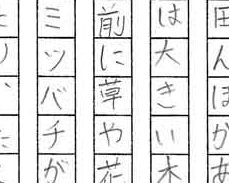 田んぼがあ
は大きい木
前に草や花
ミツバチが